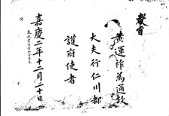 敎旨
黃運祚爲通政
大夫行仁川都
護府使者
嘉慶二年十二月二十日